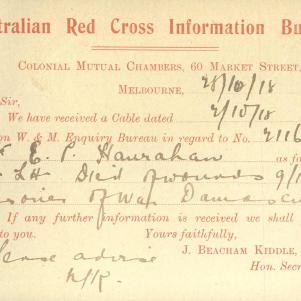 tralian Red Cross Information Bu
COLONIAL MUTUAL CHAMBERS, 60 MARKET STREET,
MELBOURNE, 28/10/18
Sir,
We have received a Cable dated 2/10/18
on W. & M. Enquiry Bureau in regard to No. 2116
E. P. Hanrahan as fo
LH Died of wounds 9/1
soner of War Damascu
If any further information is received we shall
to you. Yours faithfully,
J. BEACHAM KIDDLE,
ease advise Hon. Secr
N/K.